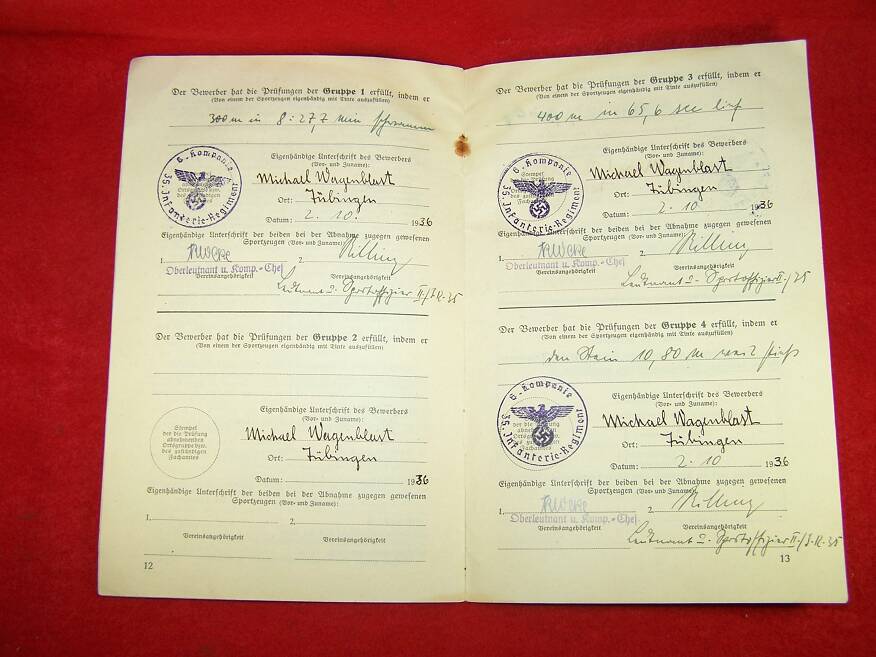 Der Bewerber hat die Prüfungen der Gruppe 1 erfüllt, indem er
(Von einem der Sportzeugen eigenhändig mit Tinte auszufüllen)
300 m in 8:27,7 min schwamm
Eigenhändige Unterschrift des Bewerbers
(Vor- und Zuname):
Michael Wagenblast
Ort: Tübingen
Datum: 2. 10. 1936
6. Kompanie
35. Infanterie-Regiment
Eigenhändige Unterschrift der beiden bei der Abnahme zugegen gewesenen
Sportzeugen (Vor- und Zuname):
1. 2. Rilling
Oberleutnant u. Komp.-Chef
Vereinsangehörigkeit Vereinsangehörigkeit
Leutnant u. Sportoffizier II./I.R. 35
Der Bewerber hat die Prüfungen der Gruppe 2 erfüllt, indem er
(Von einem der Sportzeugen eigenhändig mit Tinte auszufüllen)
Stempel
der die Prüfung
abnehmenden
Ortsgruppe bzw.
des zuständigen
Fachamtes
Eigenhändige Unterschrift des Bewerbers
(Vor- und Zuname):
Michael Wagenblast
Ort: Tübingen
Datum: 1936
Eigenhändige Unterschrift der beiden bei der Abnahme zugegen gewesenen
Sportzeugen (Vor- und Zuname):
1. 2.
Vereinsangehörigkeit Vereinsangehörigkeit
12
Der Bewerber hat die Prüfungen der Gruppe 3 erfüllt, indem er
(Von einem der Sportzeugen eigenhändig mit Tinte auszufüllen)
400 m in 65,6 sec lief
Eigenhändige Unterschrift des Bewerbers
(Vor- und Zuname):
Michael Wagenblast
Ort: Tübingen
Datum: 2. 10 1936
6. Kompanie
35. Infanterie-Regiment
Eigenhändige Unterschrift der beiden bei der Abnahme zugegen gewesenen
Sportzeugen (Vor- und Zuname):
1. 2. Rilling
Oberleutnant u. Komp.-Chef
Vereinsangehörigkeit Vereinsangehörigkeit
Leutnant u. Sportoffizier II./35
Der Bewerber hat die Prüfungen der Gruppe 4 erfüllt, indem er
(Von einem der Sportzeugen eigenhändig mit Tinte auszufüllen)
den Stein 10,80 m weit stieß
Eigenhändige Unterschrift des Bewerbers
(Vor- und Zuname):
Michael Wagenblast
Ort: Tübingen
Datum: 2. 10 1936
6. Kompanie
35. Infanterie-Regiment
Eigenhändige Unterschrift der beiden bei der Abnahme zugegen gewesenen
Sportzeugen (Vor- und Zuname):
1. 2. Rilling
Oberleutnant u. Komp.-Chef
Vereinsangehörigkeit Vereinsangehörigkeit
Leutnant u. Sportoffizier II./I.R. 35
13